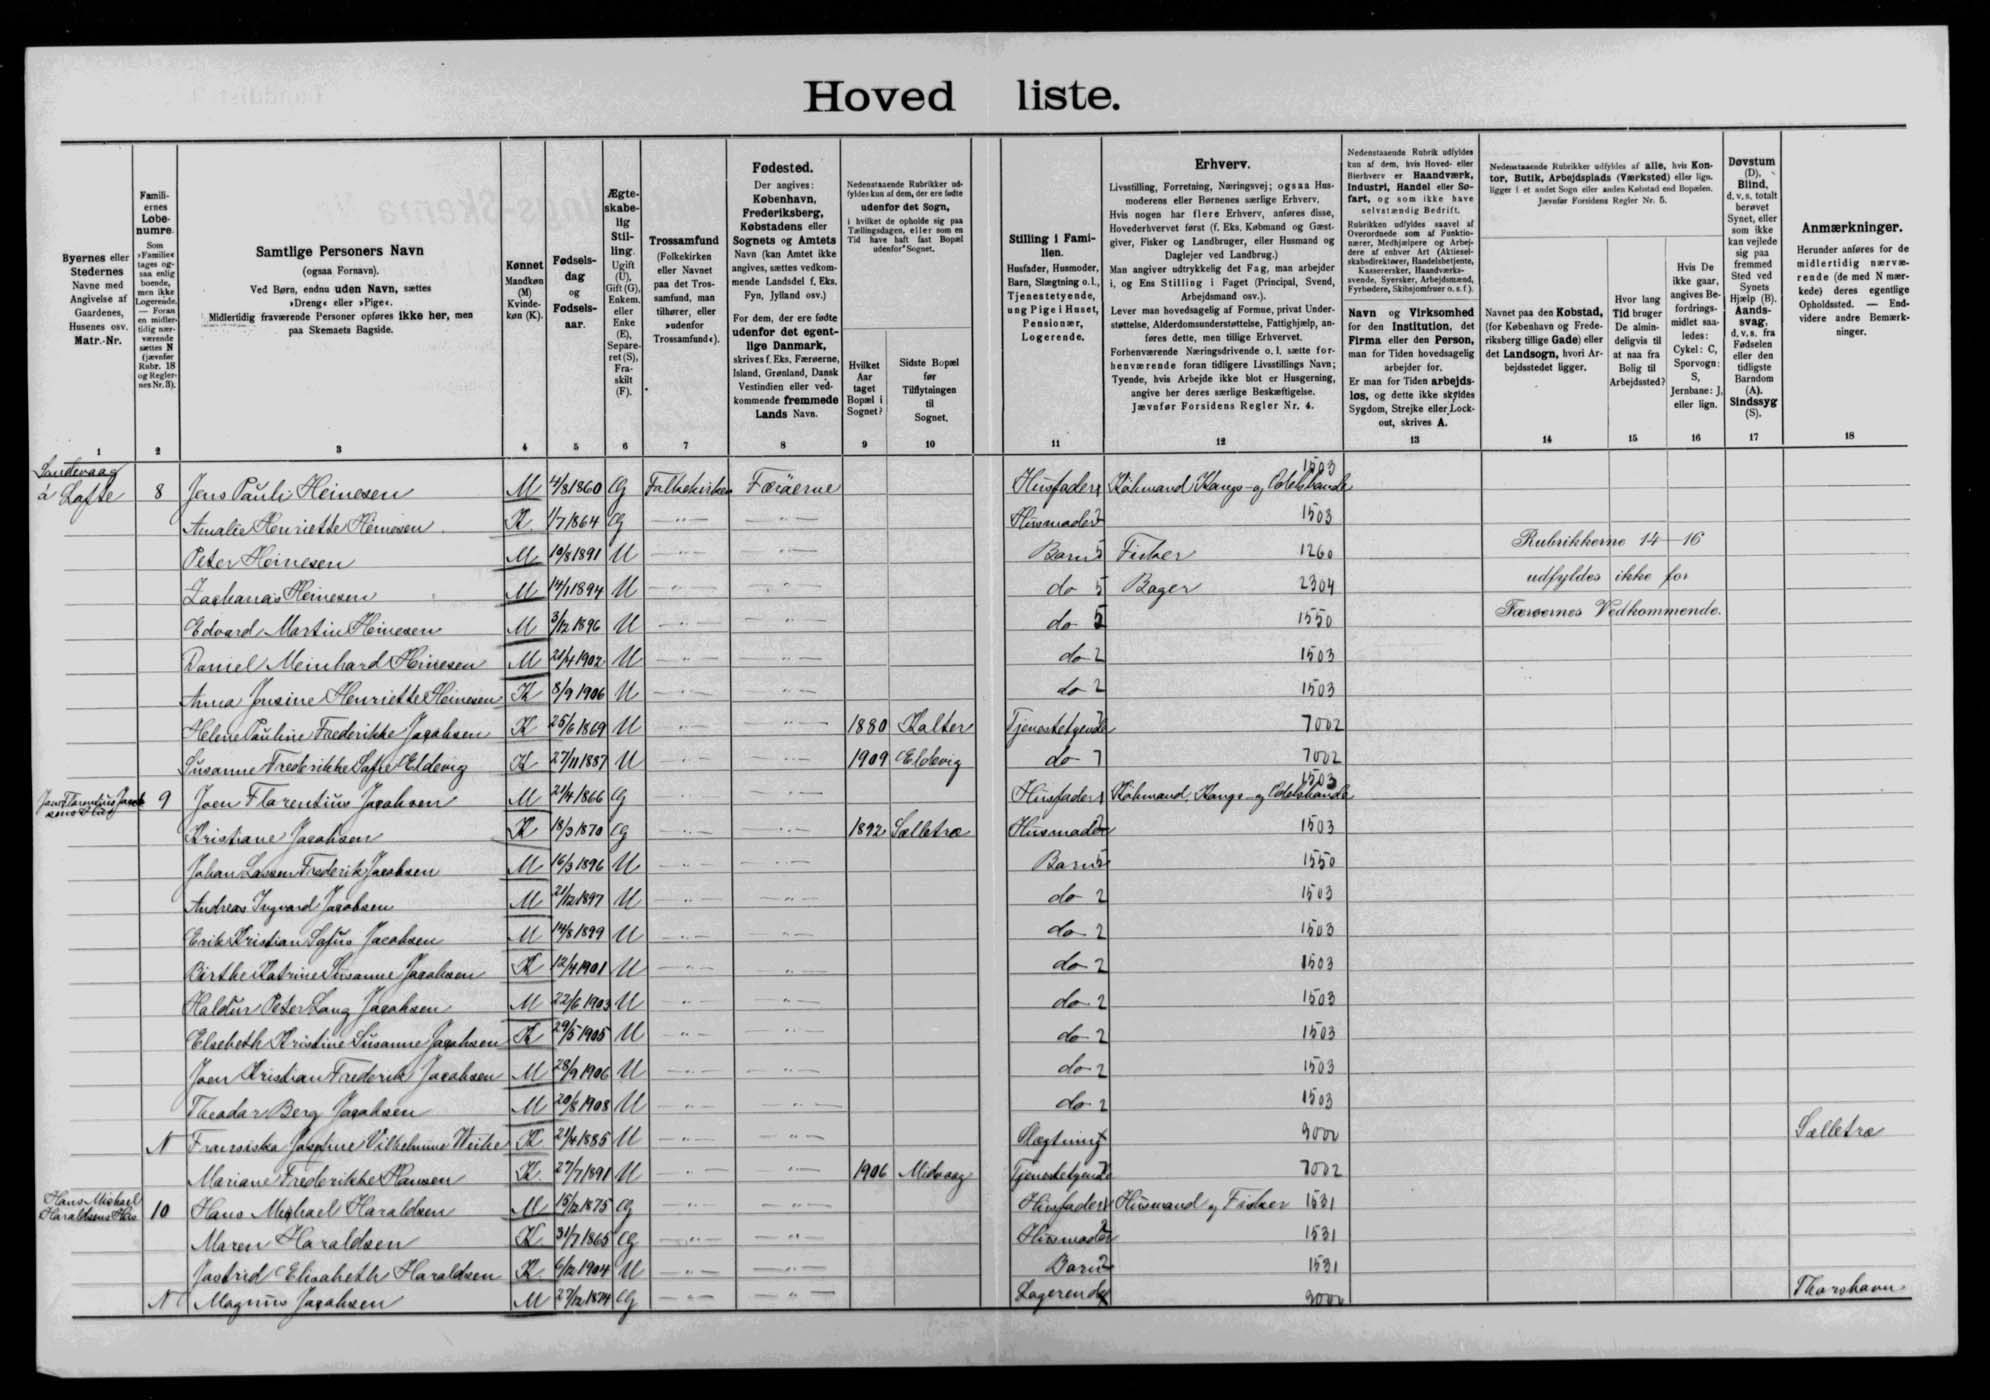 Hovedliste.
Byernes eller Stedernes Navne med Angivelse af Gaardenes, Husenes osv. Matr.-Nr.
Familiernes Løbenumre. Som »Familie« tages ogsaa enlig boende, men ikke Logerende. — Foran en midlertidig nærværende sættes N (jævnfør Rubr. 18 og Reglernes Nr. 3).
Samtlige Personers Navn (ogsaa Fornavn). Ved Børn, endnu uden Navn, sættes »Dreng« eller »Pige«. Midlertidig fraværende Personer opføres ikke her, men paa Skemaets Bagside.
Kønnet Mandkøn (M) Kvindekøn (K).
Fødselsdag og Fødselsaar.
Ægteskabelig Stilling. Ugift (U), Gift (G), Enkem. eller Enke (E), Separeret (S), Fraskilt (F).
Trossamfund (Folkekirken eller Navnet paa det Trossamfund, man tilhører, eller »udenfor Trossamfund«).
Fødested. Der angives: København, Frederiksberg, Købstadens eller Sognets og Amtets Navn (kan Amtet ikke angives, sættes vedkommende Landsdel f. Eks. Fyn, Jylland osv.) For dem, der ere fødte udenfor det egentlige Danmark, skrives f. Eks. Færøerne, Island, Grønland, Dansk Vestindien eller vedkommende fremmede Lands Navn.
Nedenstaaende Rubrikker udfyldes kun af dem, der ere fødte udenfor det Sogn, i hvilket de opholde sig paa Tællingsdagen, eller som en Tid have haft fast Bopæl udenfor Sognet.
Hvilket Aar taget Bopæl i Sognet?
Sidste Bopæl før Tilflytningen til Sognet.
Stilling i Familien. Husfader, Husmoder, Barn, Slægtning o.l., Tjenestetyende, ung Pige i Huset, Pensionær, Logerende.
Erhverv. Livsstilling, Forretning, Næringsvej; ogsaa Husmoderens eller Børnenes særlige Erhverv. Hvis nogen har flere Erhverv, anføres disse, Hovederhvervet først (f. Eks. Købmand og Gæstgiver, Fisker og Landbruger, eller Husmand og Daglejer ved Landbrug.) Man angiver udtrykkelig det Fag, man arbejder i, og Ens Stilling i Faget (Principal, Svend, Arbejdsmand osv.). Lever man hovedsagelig af Formue, privat Understøttelse, Alderdomsunderstøttelse, Fattighjælp, anføres dette, men tillige Erhvervet. Forhenværende Næringsdrivende o. l. sætte forhenværende foran tidligere Livsstillings Navn; Tyende, hvis Arbejde ikke blot er Husgerning, angive her deres særlige Beskæftigelse. Jævnfør Forsidens Regler Nr. 4.
Nedenstaaende Rubrik udfyldes kun af dem, hvis Hoved- eller Bierhverv er Haandværk, Industri, Handel eller Søfart, og som ikke have selvstændig Bedrift. Rubrikken udfyldes saavel af Overordnede som af Funktionærer, Medhjælpere og Arbejdere af enhver Art (Aktieselskabsdirektører, Handelsbetjente, Kasserersker, Haandværkssvende, Syersker, Arbejdsmænd, Fyrbødere, Skibsjomfruer o. s. f.).
Navn og Virksomhed for den Institution, det Firma eller den Person, man for Tiden hovedsagelig arbejder for. Er man for Tiden arbejdsløs, og dette ikke skyldes Sygdom, Strejke eller Lockout, skrives A.
Nedenstaaende Rubrikker udfyldes af alle, hvis Kontor, Butik, Arbejdsplads (Værksted) eller lign. ligger i et andet Sogn eller anden Købstad end Bopælen. Jævnfør Forsidens Regler Nr. 5.
Navnet paa den Købstad, (for København og Frederiksberg tillige Gade) eller det Landsogn, hvori Arbejdsstedet ligger.
Hvor lang Tid bruger De almindeligvis til at naa fra Bolig til Arbejdssted?
Hvis De ikke gaar, angives Befordringsmidlet saaledes: Cykel: C, Sporvogn: S, Jernbane: J, eller lign.
Døvstum (D), Blind, d. v. s. totalt berøvet Synet, eller som ikke kan vejlede sig paa fremmed Sted ved Synets Hjælp (B). Aandssvag, d. v. s. fra Fødselen eller den tidligste Barndom (A). Sindssyg (S).
Anmærkninger. Herunder anføres for de midlertidig nærværende (de med N mærkede) deres egentlige Opholdssted. — Endvidere andre Bemærkninger.
1 2 3 4 5 6 7 8 9 10 11 12 13 14 15 16 17 18
Sandevaag
á Lofte 8 Jens Pauli Heinesen M 4/8 1860 G Folkekirken Færøerne Husfader 1 Købmand, Kongs- og Odelsbonde 1503
Amalie Henriette Heinesen K 1/7 1864 G Husmoder 2 1503
Peter Heinesen M 19/8 1891 U Barn 5 Fisker 1260 Rubrikkerne 14-16
Zacharias Heinesen M 14/1 1894 U do 5 Bager 2304 udfyldes ikke for
Edvard Martin Heinesen M 3/12 1896 U do 5 1550 Færøernes Vedkommende.
Daniel Meinhard Heinesen M 21/4 1902 U do 2 1503
Anna Jensine Henriette Heinesen K 8/9 1906 U do 2 1503
Helene Pauline Frederikke Jacobsen K 25/6 1869 U 1880 Kolter Tjenestetyende 7002
Susanne Frederikke Sofie Eldevig K 27/11 1887 U 1909 Eldevig do 7 7002
9 Joen Florentius Jacobsen M 21/4 1866 G Husfader 1 Købmand, Kongs- og Odelsbonde 1503
Kristiane Jacobsen K 18/3 1870 G 1892 Sælletræ Husmoder 1503
Johan Lassen Frederik Jacobsen M 16/3 1896 U Barn 5 1550
Andreas Ingvard Jacobsen M 21/12 1897 U do 2 1503
Erik Kristian Sofus Jacobsen M 14/8 1899 U do 2 1503
Birthe Katrine Susanne Jacobsen K 12/4 1901 U do 2 1503
Haldur Peter Lang Jacobsen M 22/6 1903 U do 2 1503
Elsebeth Kristine Susanne Jacobsen K 29/5 1905 U do 2 1503
Joen Kristian Frederik Jacobsen M 28/9 1906 U do 2 1503
Theodor Berg Jacobsen M 20/8 1908 U do 2 1503
N Fransiska Josefine Vilhelmine K 21/4 1885 U Slægtning 9000 Sælletræ
Mariane Frederikke Hansen K 27/7 1891 U 1906 Midvaag Tjenestetyende 7002
Hans Michael
Haraldsens Hus 10 Hans Michael Haraldsen M 15/12 1875 G Husfader 1 Husmand og Fisker 1531
Maren Haraldsen K 31/7 1865 G Husmoder 1531
Jastrid Elisabeth Haraldsen K 6/12 1904 U Barn 2 1531
N Magnus Jacobsen M 27/12 1874 G Logerende 9000 Thorshavn